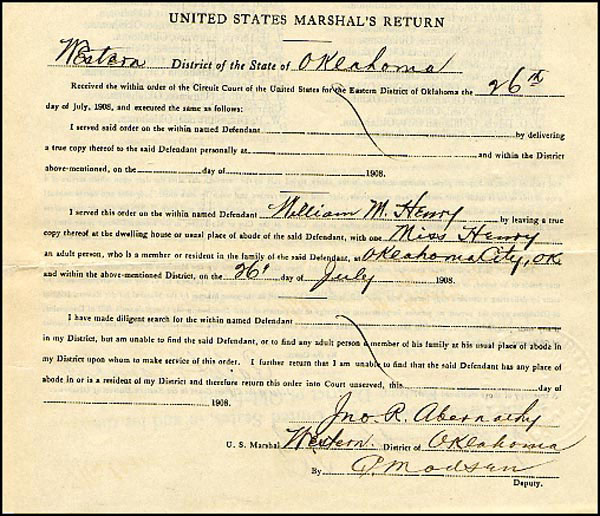 UNITED STATES MARSHAL'S RETURN
Western District of the State of Oklahoma
Received the within order of the Circuit Court of the United States for the Eastern District of Oklahoma the 26th
day of July, 1908, and executed the same as follows:
I served said order on the within named Defendant by delivering
a true copy thereof to the said Defendant personally at and within the District
above-mentioned, on the day of 1908.
I served this order on the within named Defendant William M. Henry by leaving a true
copy thereof at the dwelling house or usual place of abode of the said Defendant, with one Miss Henry
an adult person, who is a member or resident in the family of the said Defendant, at Oklahoma City, OK.
and within the above-mentioned District, on the 26' day of July 1908.
I have made diligent search for the within named Defendant
in my District, but am unable to find the said Defendant, or to find any adult person a member of his family at his usual place of abode in
my District upon whom to make service of this order. I further return that I am unable to find that the said Defendant has any place of
abode in or is a resident of my District and therefore return this order into Court unserved, this day of
1908.
Jno. R. Abernathy
U. S. Marshal Western District of Oklahoma
By C. Madsen
Deputy.